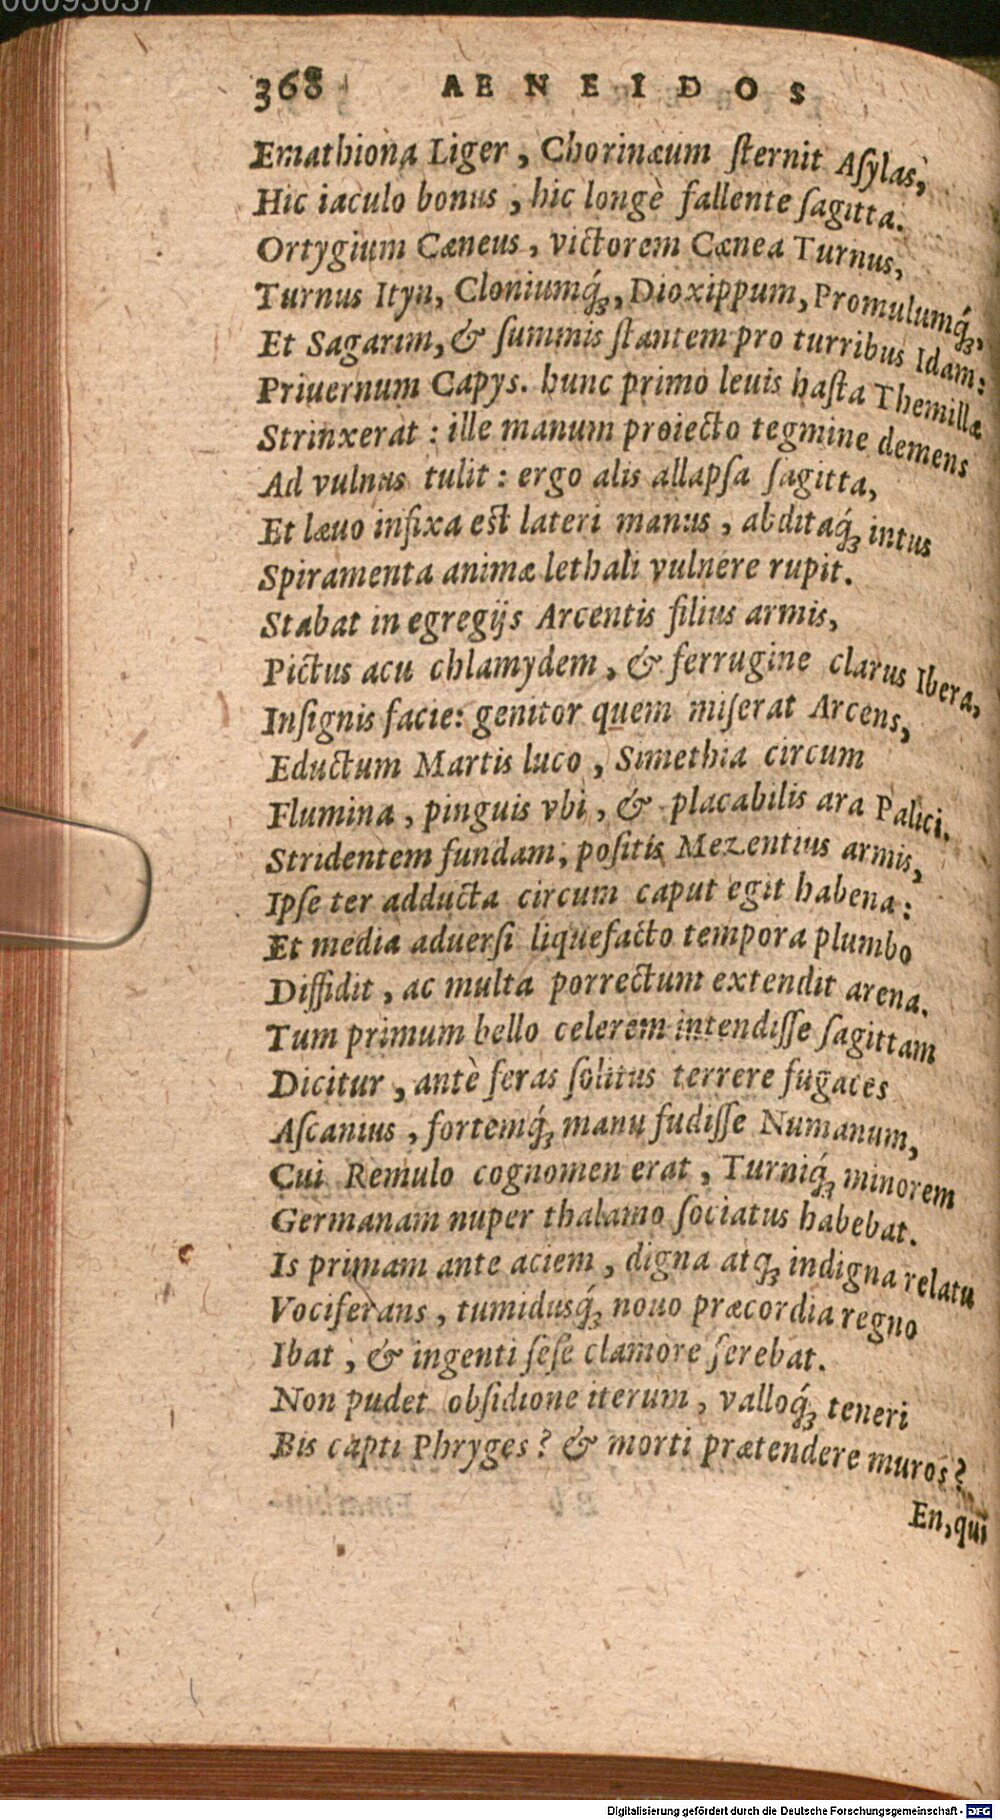 00093037
368 AENEIDOS
Emathiona Liger, Chorinæum ſternit Aſylas,
Hic iaculo bonus, hic longè fallente ſagitta.
Ortygium Cæneus, victorem Cænea Turnus,
Turnus Ityn, Cloniumq́;, Dioxippum, Promulumq́;,
Et Sagarim, & ſummis ſtantem pro turribus Idam:
Priuernum Capys. hunc primo leuis haſta Themillæ
Strinxerat: ille manum proiecto tegmine demens
Ad vulnus tulit: ergo alis allapſa ſagitta,
Et læuo infixa eſt lateri manus, abditaq́; intus
Spiramenta animæ lethali vulnere rupit.
Stabat in egregijs Arcentis filius armis,
Pictus acu chlamydem, & ferrugine clarus Ibera,
Inſignis facie: genitor quem miſerat Arcens,
Eductum Martis luco, Simethia circum
Flumina, pinguis vbi, & placabilis ara Palici.
Stridentem fundam, poſitis Mezentius armis,
Ipſe ter adducta circum caput egit habena:
Et media aduerſi liquefacto tempora plumbo
Diffidit, ac multa porrectum extendit arena.
Tum primum bello celerem intendiſſe ſagittam
Dicitur, antè feras ſolitus terrere fugaces
Aſcanius, fortemq́; manu fudiſſe Numanum,
Cui Remulo cognomen erat, Turniq́; minorem
Germanam nuper thalamo ſociatus habebat.
Is primam ante aciem, digna atq; indigna relatu
Vociferans, tumidusq́; nouo præcordia regno
Ibat, & ingenti ſeſe clamore ferebat.
Non pudet obſidione iterum, valloq́; teneri
Bis capti Phryges? & morti prætendere muros?
En, qui
Digitalisierung gefördert durch die Deutsche Forschungsgemeinschaft - DFG